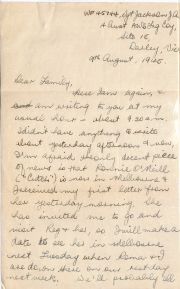 Jackson J.A
1 Aust.
Site 16,
Darley, Vic
9th August, 1945.
Dear Family,
Here I am again &
am writing to you at my
usual hour - about 9.20am.
I didn't have anything to write
about yesterday afternoon & now,
I'm afraid the only decent piece
of news is that Ronnie O'Neill
("Curly") is now in Melbourne &
I received my first letter from
her yesterday morning. She
has invited me to go and
visit Reg & her, so I will make a
date to see her in Melbourne
next Tuesday when Roma & I
are down there on our rest-day
next week. We'll probably all